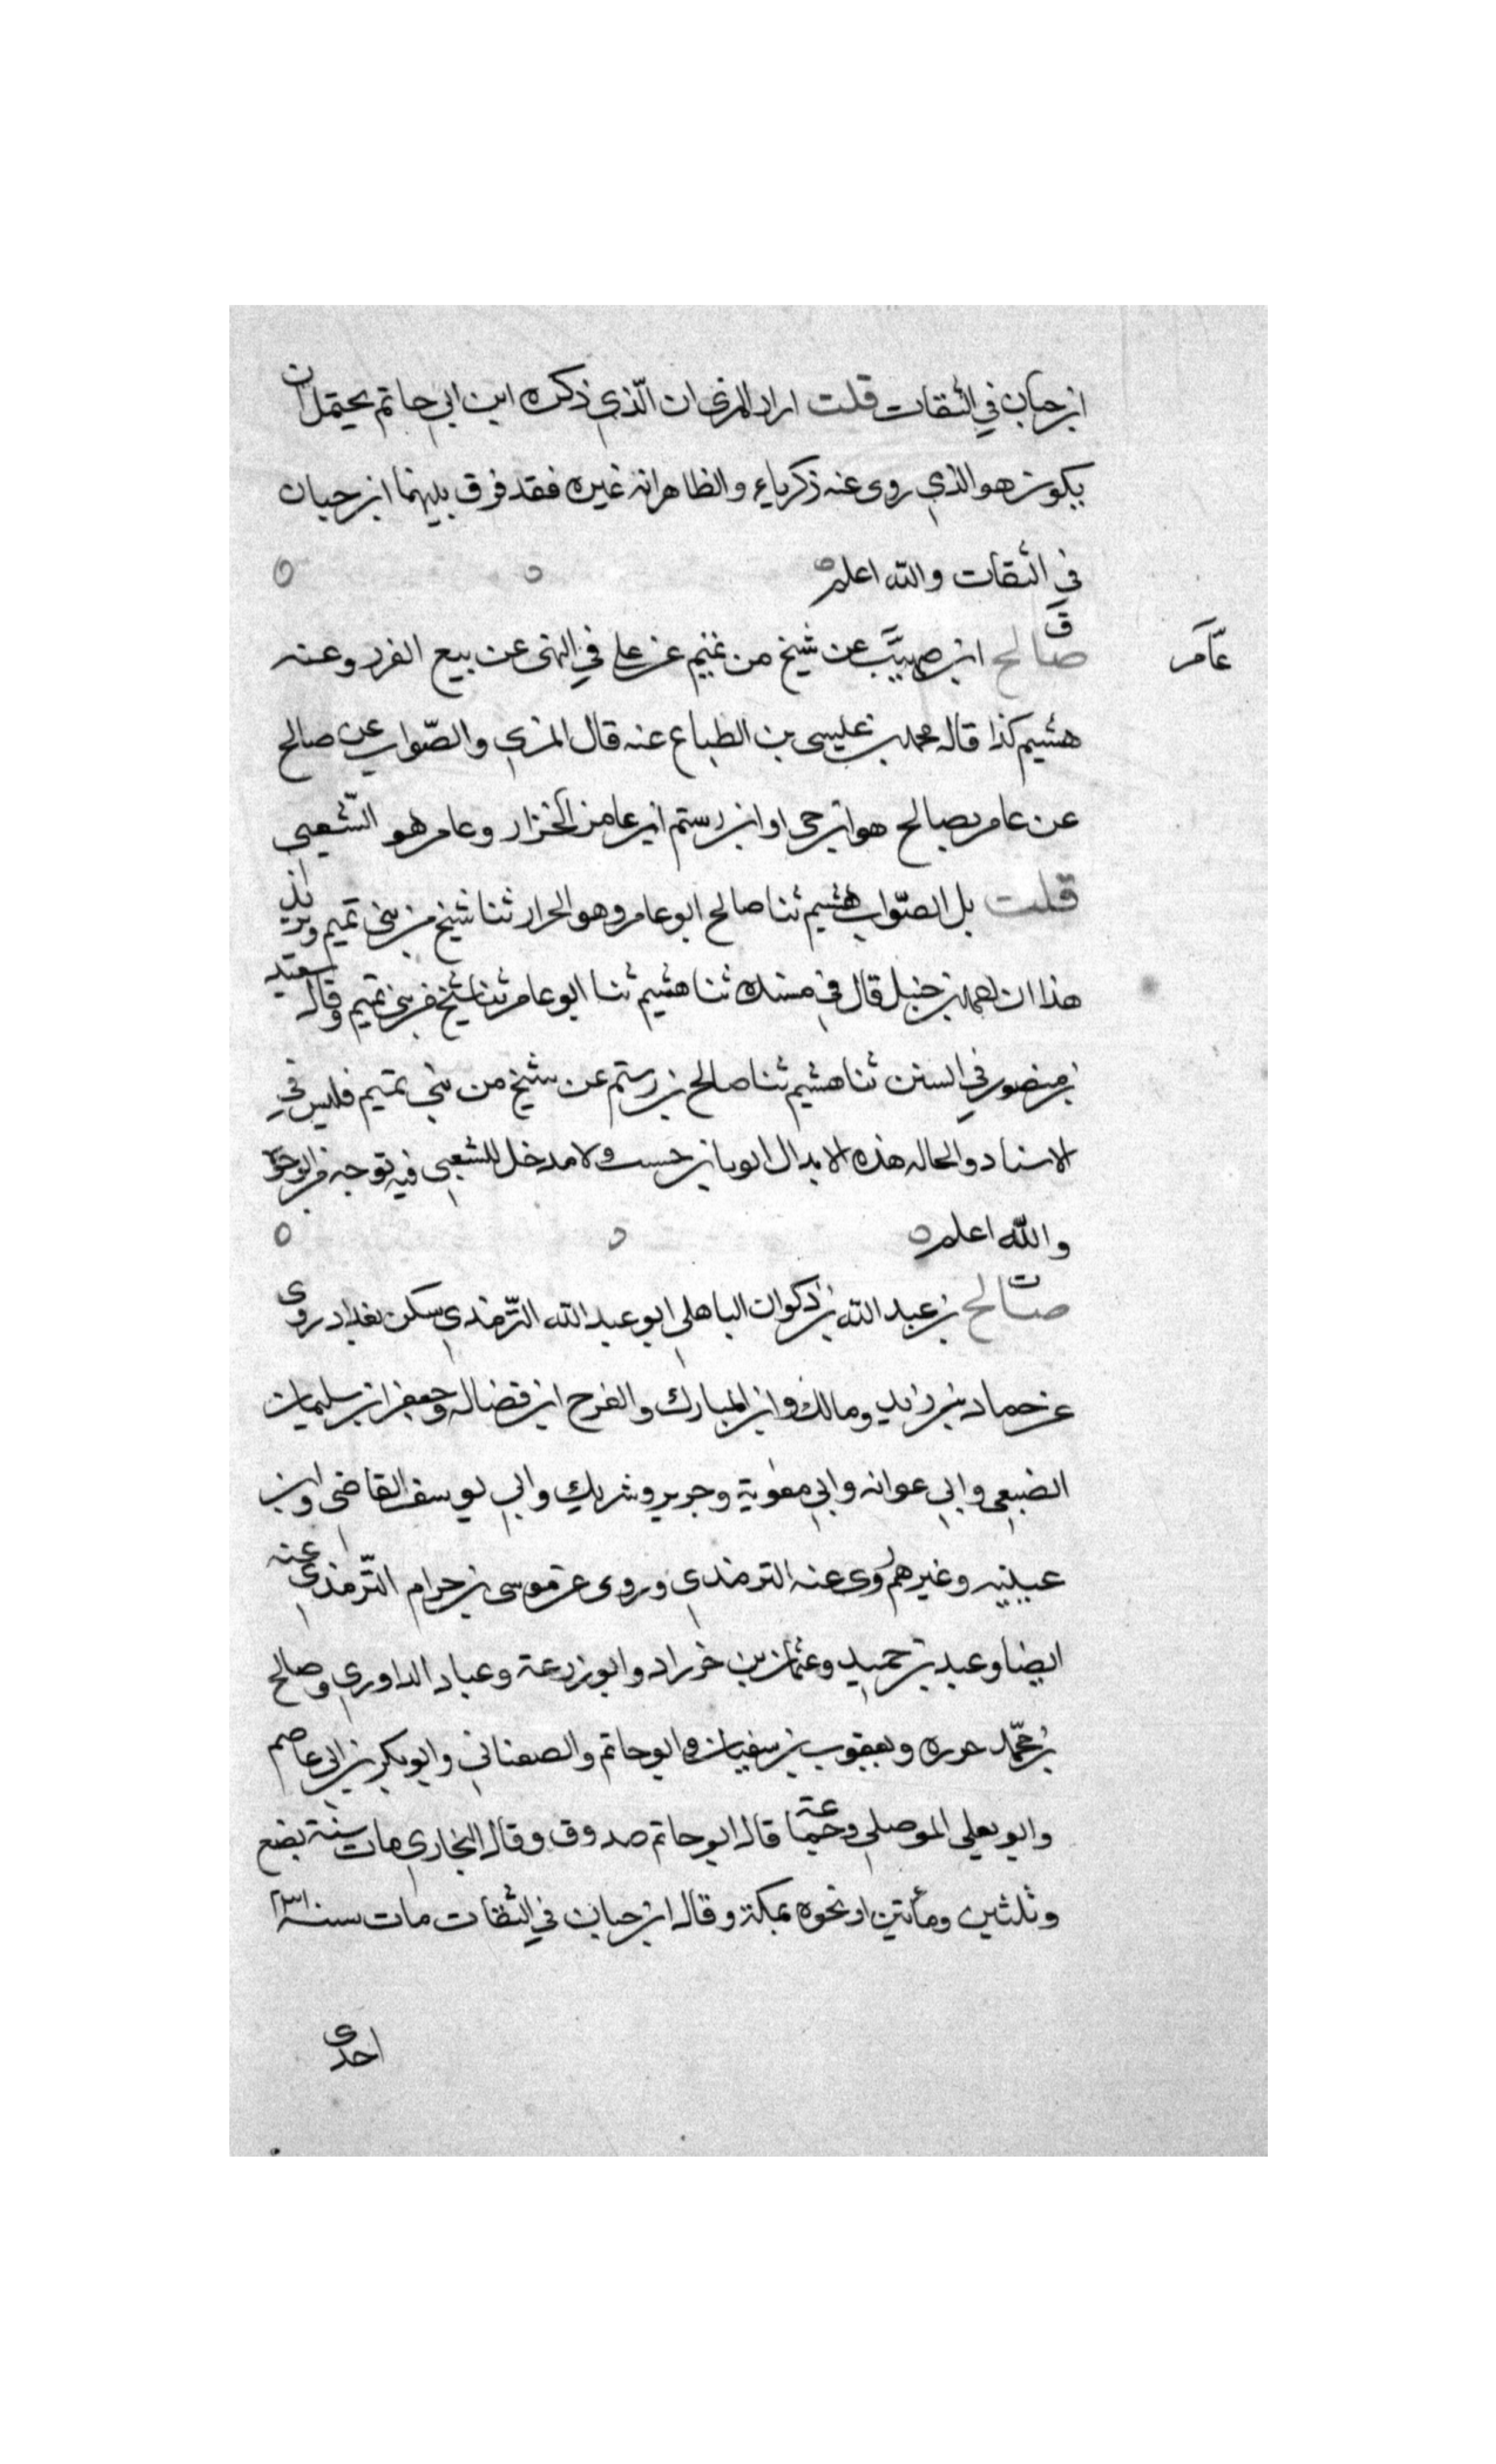 ابن حبان في الثقات قلت اراد المزي ان الذي ذكره ابن ابي حاتم يحتمل ان
يكون هو الذي روى عنه زكرياء والظاهر انه غيره فقد فرق بينهما ابن حبان
في الثقات والله اعلم
ق
صالح ابن صهيب عن شيخ من تميم عن علي في النهى عن بيع الغرر وعنه
عامر
هشيم كذا قاله محمد بن عيسى بن الطباع عنه قال المزي والصواب عن صالح
عن عامر بصالح هو ابن حي او ابن رستم ابن عامر الخزار وعامر هو الشعبي
قلت بل الصواب هشيم ثنا صالح ابو عامر وهو الخزار ثنا شيخ من بني تميم
هذا ان احمد بن حنبل قال في مسنده ثنا هشيم ثنا ابو عامر ثنا شيخ من بني تميم وقال سعيد
بن منصور في السنن ثنا هشيم ثنا صالح بن رستم عن شيخ من بني تميم فليس في
الاسناد والحاله هذه الا ابدال ابو بابن حسب ولا مدخل للشعبي فيه بوجه من الوجوه
والله اعلم
ت
صالح بن عبد الله بن ذكوان الباهلي ابو عبد الله الترمذي سكن بغداد روى
عن حماد بن زيد ومالك وابن المبارك والفرج ابن فضاله وجعفر ابن سليمان
الضبعي وابي عوانه وابي معوية وجرير وشريك وابي يوسف القاضى وابن
عيينه وغيرهم روى عنه الترمذي وروى عن موسى بن حرام الترمذي عنه
ايضا وعبد بن حميد وعثمان بن خرزاد وابو زرعة وعباد الداوري وصالح
بن محمد حرره ويعقوب بن سفيان وابو حاتم والصغاني وابو بكر بن ابي عاصم
وابو يعلى الموصلي وجماعة قال ابو حاتم صدوق وقال البخاري مات سنة بضع
وثلثين ومائتين او نحوه بمكة وقال ابن حبان في الثقات مات سنة
احدى